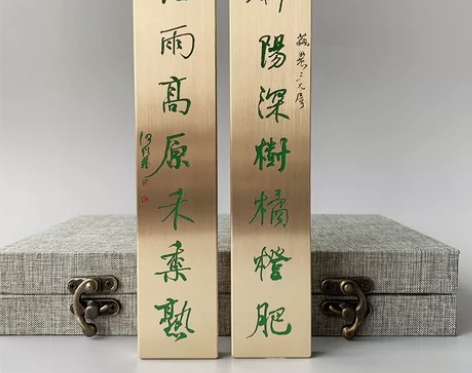 陽深樹橘橙肥
雨高原禾黍熟
何紹基